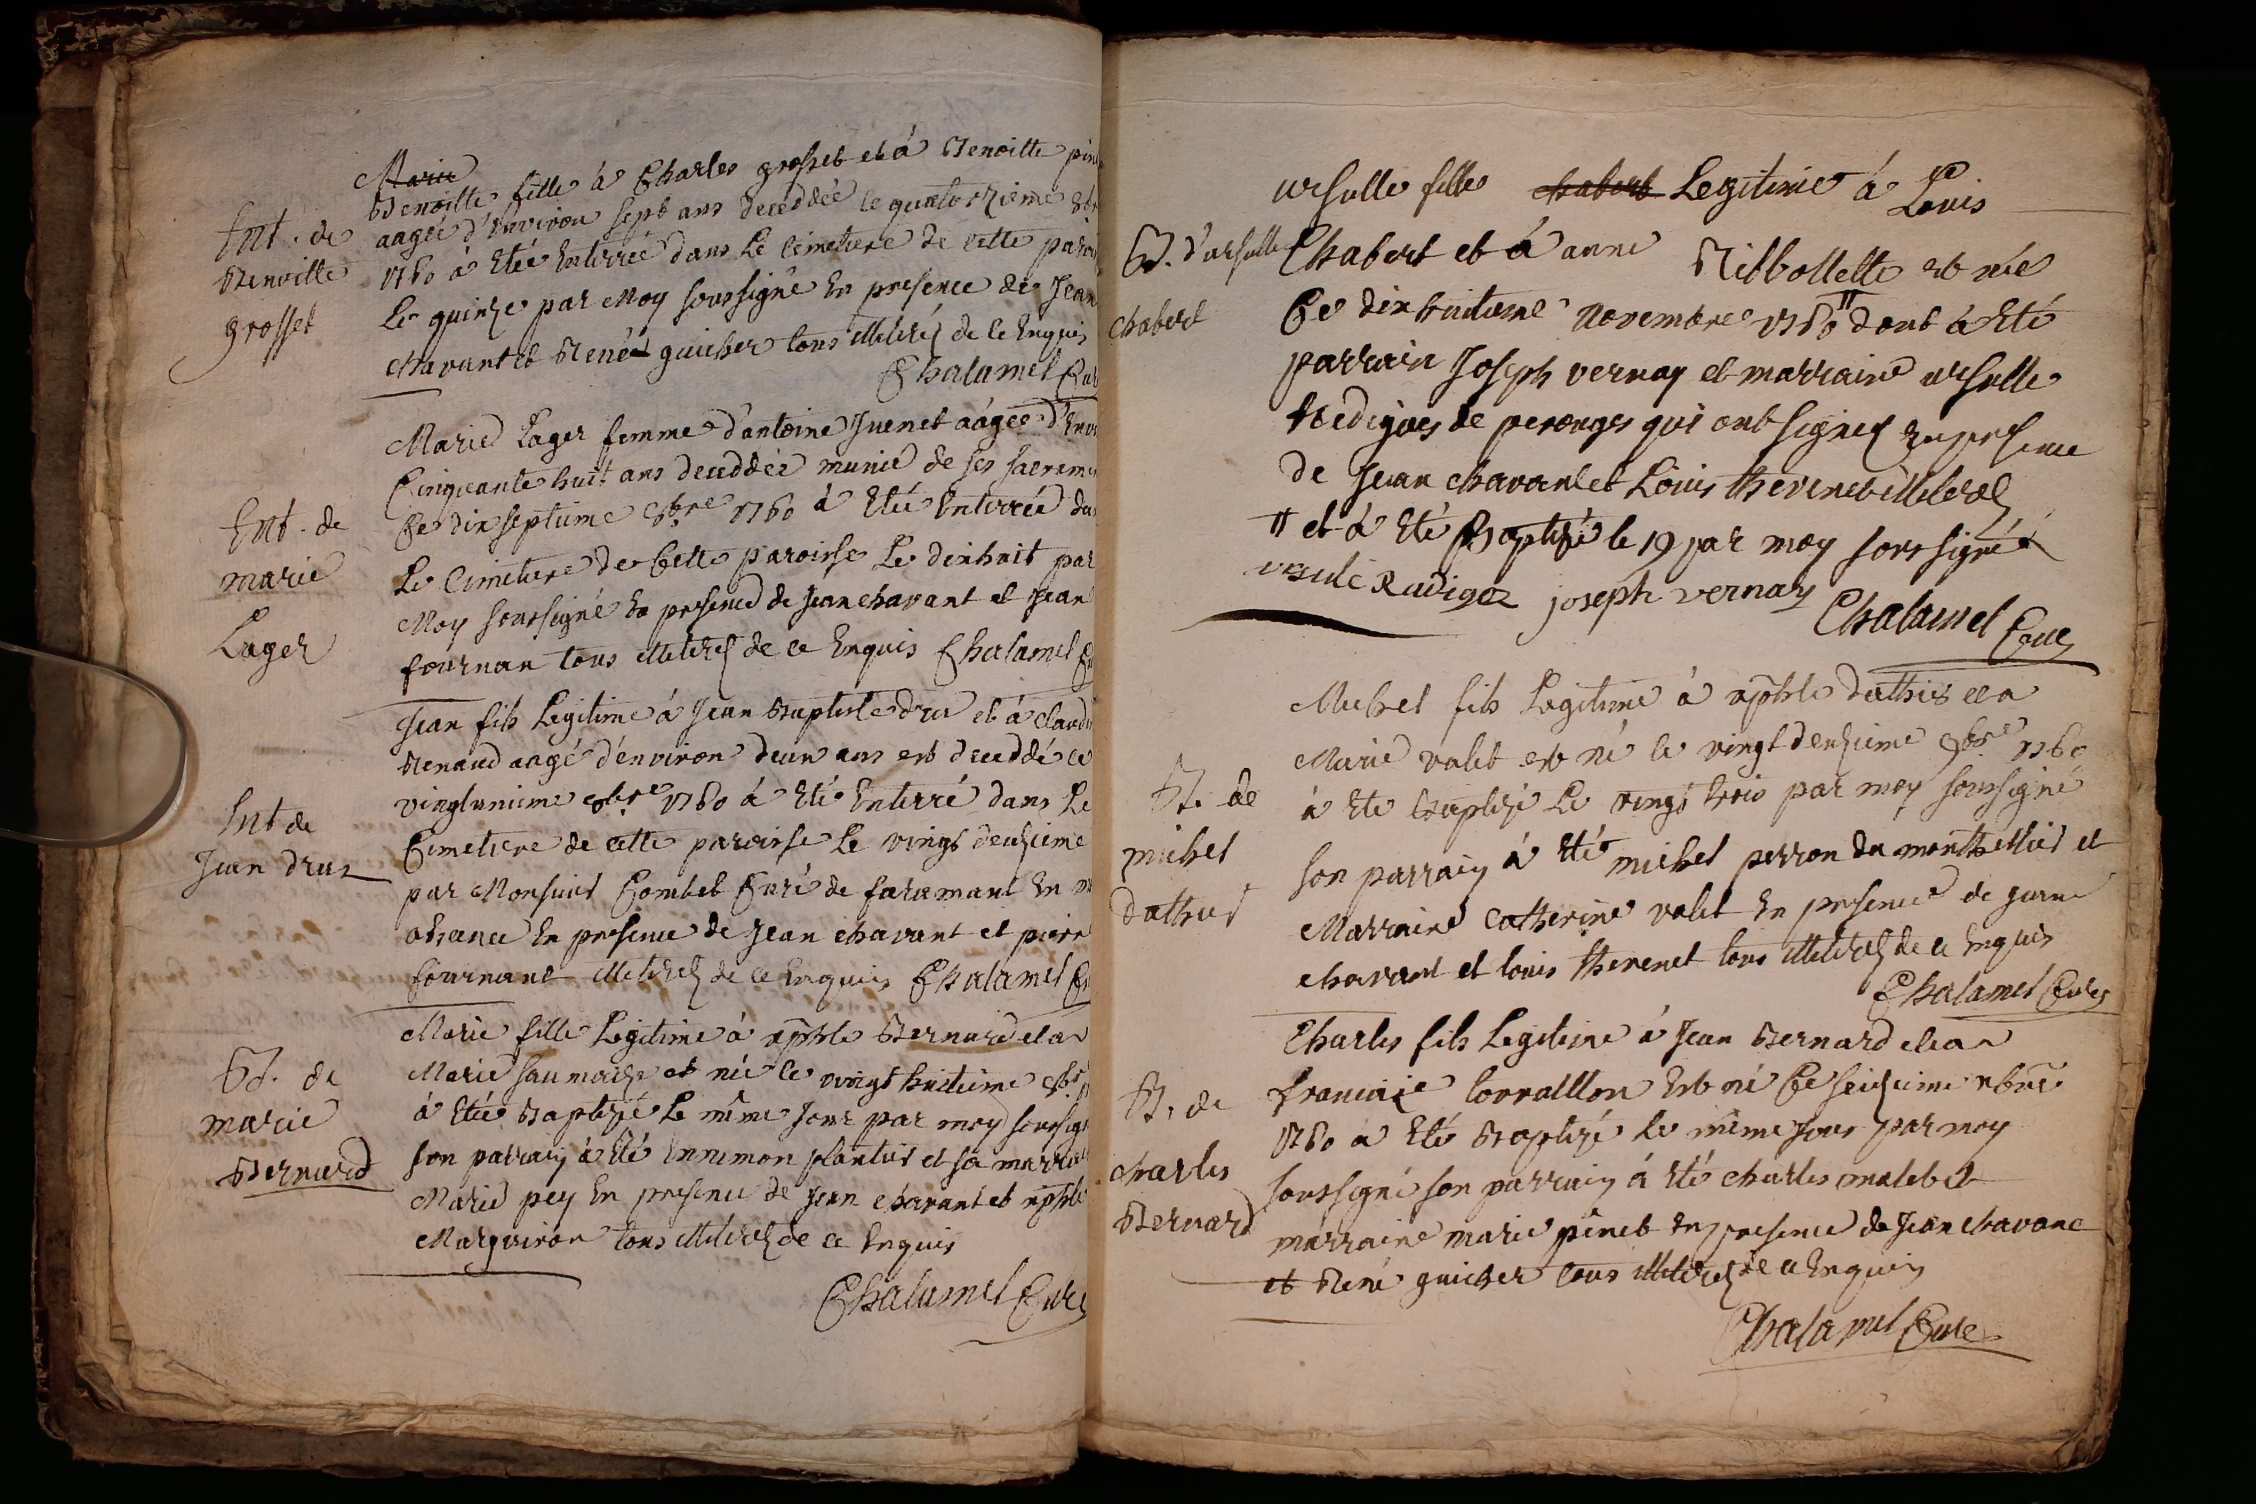 Ent. de
Benoitte
grosset
Marie
Benoitte fille à Charles grosset et à Benoitte
aagée d'Environ sept ans deceddée le quatorzieme
1760 à Etée Enterrée dans Le Cimetiere de cette
Le quinze par Moy soussigné En presence de Jean
chavant et René guicher tous illiterés de ce Enquis
Chalamel
Ent. de
marie
Lager
Marie Lager femme d'antoine Juenet aagée
Cinquante huit ans deceddée munie de ses
Ce dix septieme 9bre 1760 à Etée Enterrée
Le Cimetiere de Cette paroisse Le dix huit par
Moy soussigné En presence de Jean chavant et Jean
fournan tous illiterés de ce Enquis Chalamel
Ent de
Jean druz
Jean fils Legitime à Jean Baptiste et à
Renaud aagé d'environ deux ans est deceddé ce
vingtunieme 9bre 1760 à Eté Enterré dans Le
Cimetiere de cette paroisse Le vingt deuzieme
par Monsuier Combet Curé de faramant En
absance En presence de Jean chavant et pierre
fournant illiterés de ce Enquis Chalamel
B. de
marie
Bernard
Marie fille Legitime à xp̄hle Bernard et a
Marie et née le vingt huitieme 9bre
à Etée Baptizé Le même Jour par moy
son parrain à Eté Ennemon plantier et sa
Marie pey En presence de Jean chavant et xp̄hle
Marguiron tous illiterés de ce Enquis
Chalamel Curé
B. d'ursulle
chabert
ursulle fille chabert Legitime à Louis
Chabert et à anne Ribollette est née
Ce dix huitieme novembre 1760 " dont à Eté
parrain Joseph vernay et marraine ursulle
de perouges qui ont signés En presence
de Jean chavant et Louis thevenet illiterés
" et à Eté Baptizé le 19 par moy soussigné
joseph vernay
Chalamel Curé
B. de
michel
dathier
Michel fils Legitime à xp̄hle dathier et a
Marie valet est né le vingt deuzieme 9bre 1760
à Eté baptizé Le vingt trois par moy soussigné
son parrain à Eté michel perron du monthellier et
Marraine Catherine valet En presence de
chavant et louis thevenet tous illiterés de ce Enquis
Chalamel Curé
B. de
charles
Bernard
Charles fils Legitime à Jean Bernard et a
francoise Est né Ce seizieme
1760 à Eté Baptizé Le même Jour par moy
soussigné son parrain à Eté charles malet et
marraine marie pinet En presence de Jean chavant
et René guicher tous illiterés de ce Enquis
Chalamel Curé